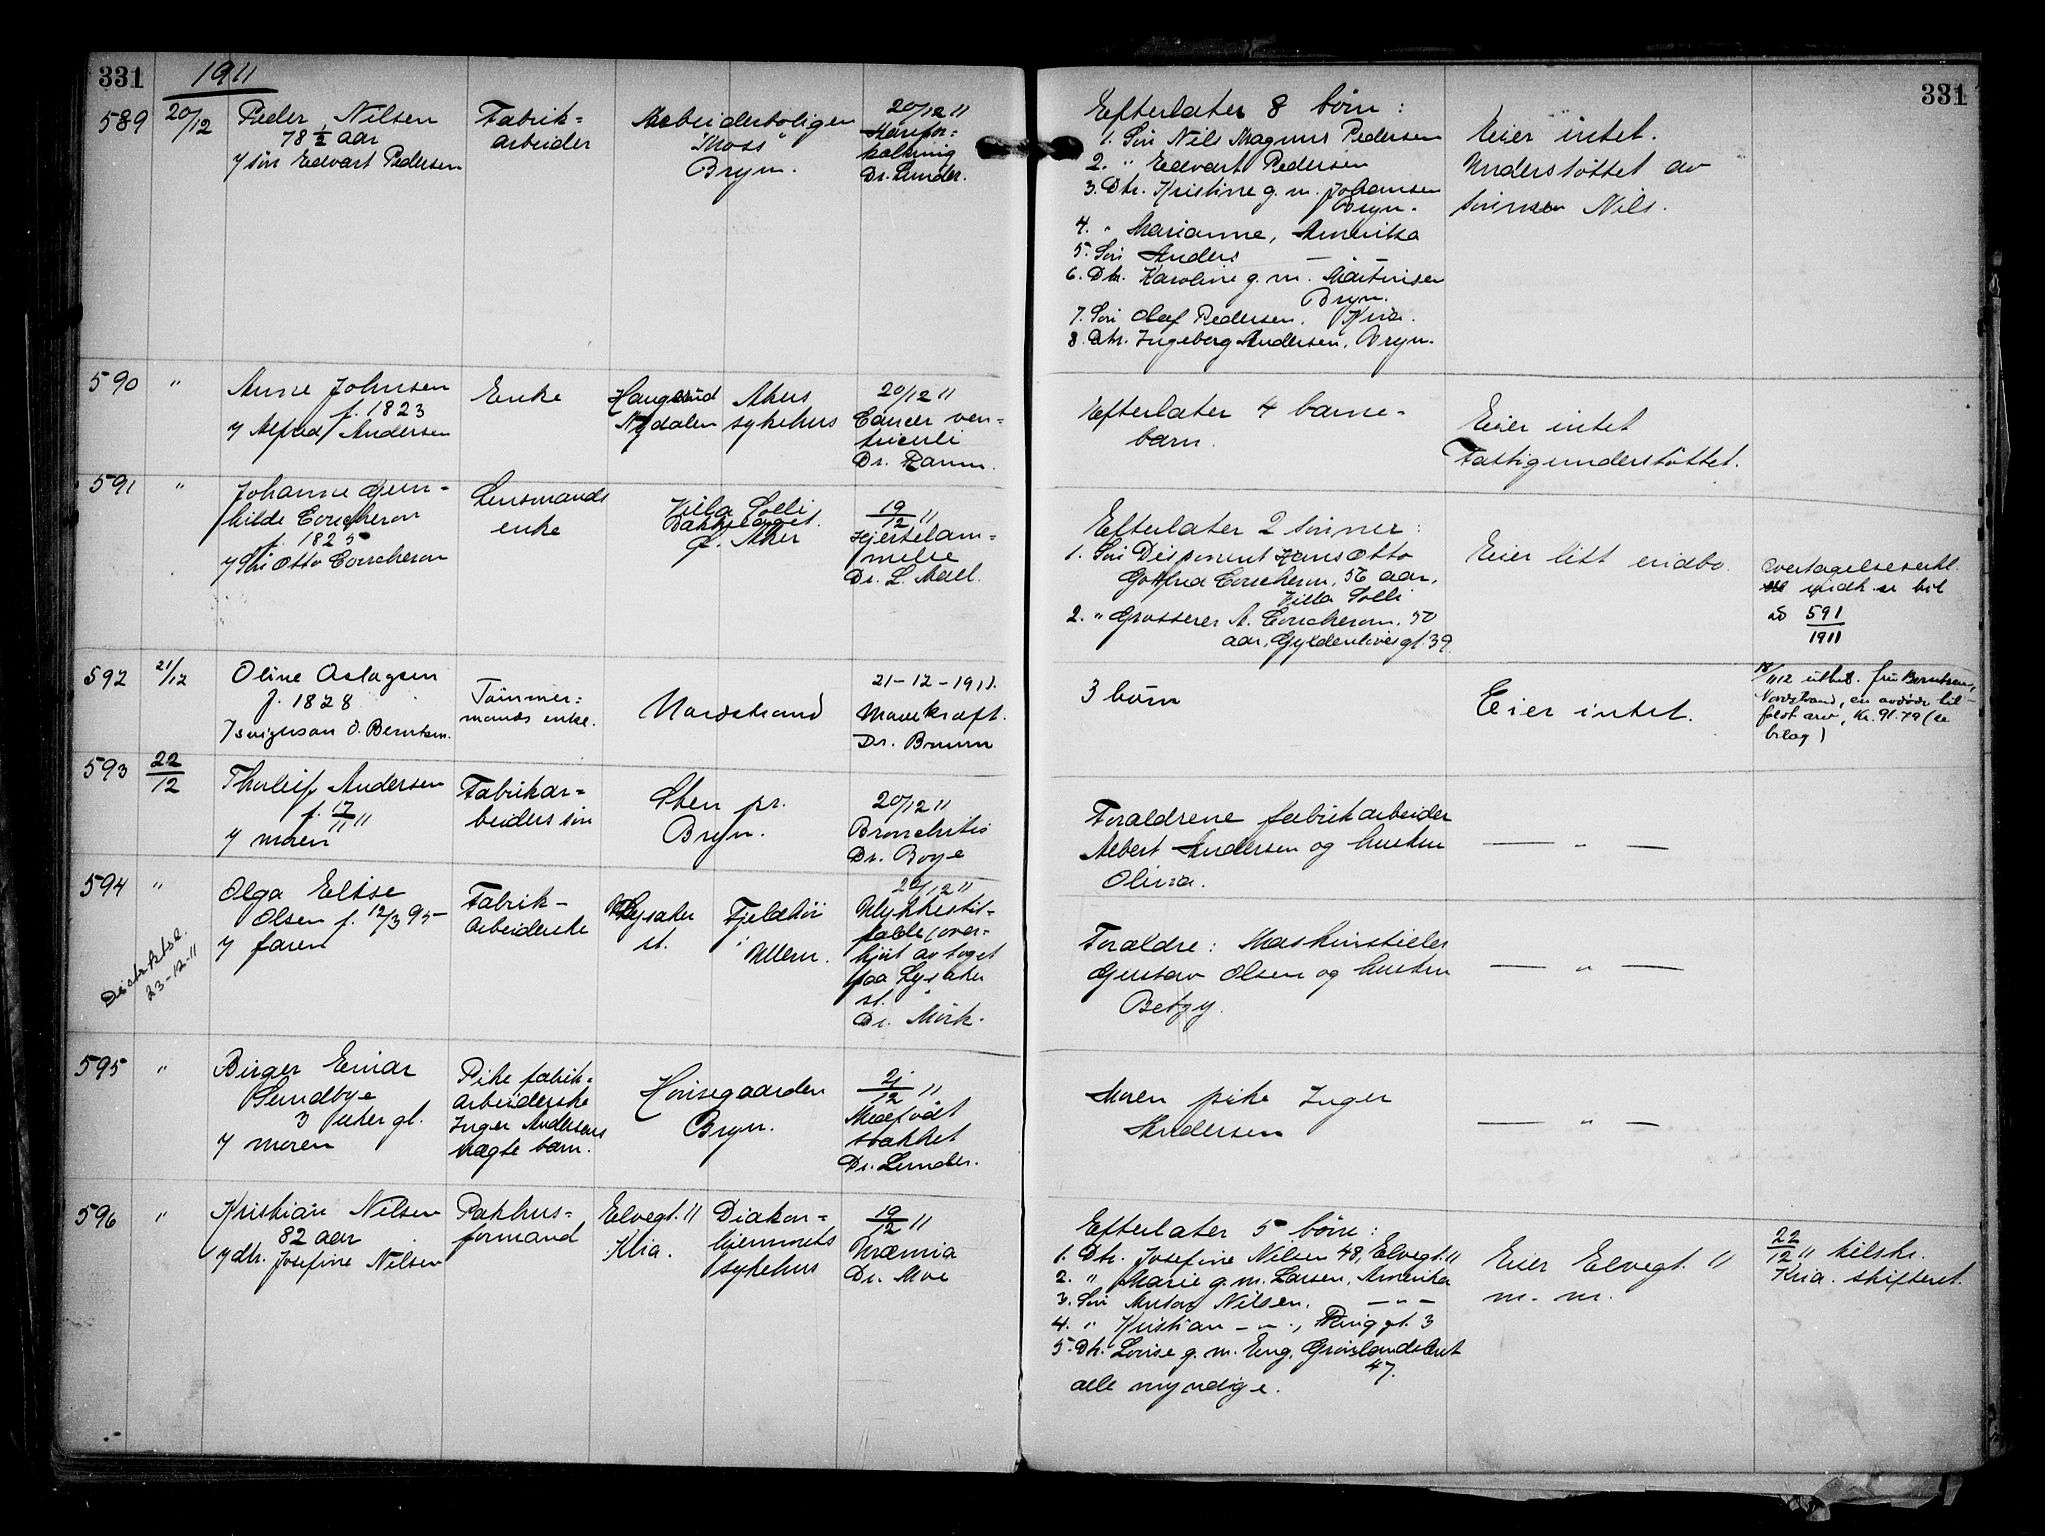 331
1911
331
589
20/12
Peder Nilsen
78 ½ aar
v/ søn Edvart Pedersen
Fabrik-
arbeider
Arbeiderboligen
"Moss"
Bryn.
20/12 11
Aarefor-
kalkning
Dr. Lunder.
Efterlater 8 børn:
1. Søn Nils Magnus Pedersen
2. " Edvart Pedersen
3. Dtr. Kristine g. m. Johansen
Bryn.
4. " Marianne, Amerika
5. Søn Anders — " —
6. Dtr. Karoline g. m. Martinsen
Bryn.
7. Søn Olaf Pedersen, Kria.
8. Dtr. Ingeborg Andersen, Bryn.
Eier intet.
Understøttet av
sønnen Nils.
590
"
Anne Johnsen
f. 1823
v/ Alfred Andersen
Enke
Haugerud
Nydalen
Akers
sykehus
20/12 11
Cancer ven-
triculi
Dr. Ramm.
Efterlater 4 barne-
barn.
Eier intet
Fattigunderstøttet.
591
"
Johanne Gun-
hilde Coucheron
f. 1825
v/ Søn Otto Coucheron
Lensmands
enke
Villa Solli
Bakkelaget.
Ø. Aker
19/12 11
Hjertelam-
melse
Dr. L. Mell.
Efterlater 2 sønner:
1. Søn Disponent Hans Otto
Gotfred Coucheron, 56 aar,
Villa Solli
2. " Grosserer A. Coucheron, 50
aar, Gyldenløvesgt. 39.
Eier litt indbo.
Overtagelseserkl.
591
1911
592
21/12
Oline Aslagsen
f. 1828
v/ svigersøn O. Berntsen.
Tømmer-
mands enke.
Nordstrand
21-12-1911.
Mavekræft.
Dr. Bruun
3 børn
Eier intet.
18/1 12 utbet. fru Berntsen,
Nordstrand, en avdøde til-
faldt arv, Kr. 91.79 (se
bilag)
593
22/12
Thorleif Andersen
f. 17/11 11
v/ moren
Fabrikar-
beiders søn
Sten pr.
Bryn.
20/12 11
Bronchitis
Dr. Boye
Forældrene fabrikarbeider
Albert Andersen og hustru
Olivia.
— " —
594
"
Distr. Aktse.
23-12-11
Olga Elise
Olsen f. 12/3 95
v/ faren
Fabrik-
arbeiderske
Lysaker
st.
Fjeldhøi
Ullern.
20/12 11
Ulykkestil-
fælde (over-
kjørt av toget
paa Lysaker
st.
Dr. Mørk.
Forældre: Maskinstiller
Gustav Olsen og hustru
Betzy.
— " —
595
"
Birger Einar
Sundbye
3 uker gl.
v/ moren
Pike fabrik-
arbeiderske
Inger Andersens
uægte barn.
Hovisegaarden
Bryn.
21/12 11
Medfødt
svakhet
Dr. Lunder.
Moren pike Inger
Andersen
— " —
596
"
Kristian Nilsen
82 aar
v/ dtr. Josefine Nilsen
Pakhus-
formand
Elvegt. 11
Kria.
Diakon-
hjemmets
sykehus
19/12 11
Uræmia
Dr. Moe
Efterlater 5 børn:
1. Dtr. Josefine Nilsen 48, Elvegt. 11
2. " Marie g. m. Larsen, Amerika
3. Søn Anton Nilsen, — " —
4. " Kristian — " —, Ringgt. 3
5. Dtr. Lovise g. m. Eng, Grønlandsleret
47.
alle myndige.
Eier Elvegt. 11
m. m.
22/12 11 tilskr.
Kria. skifteret.